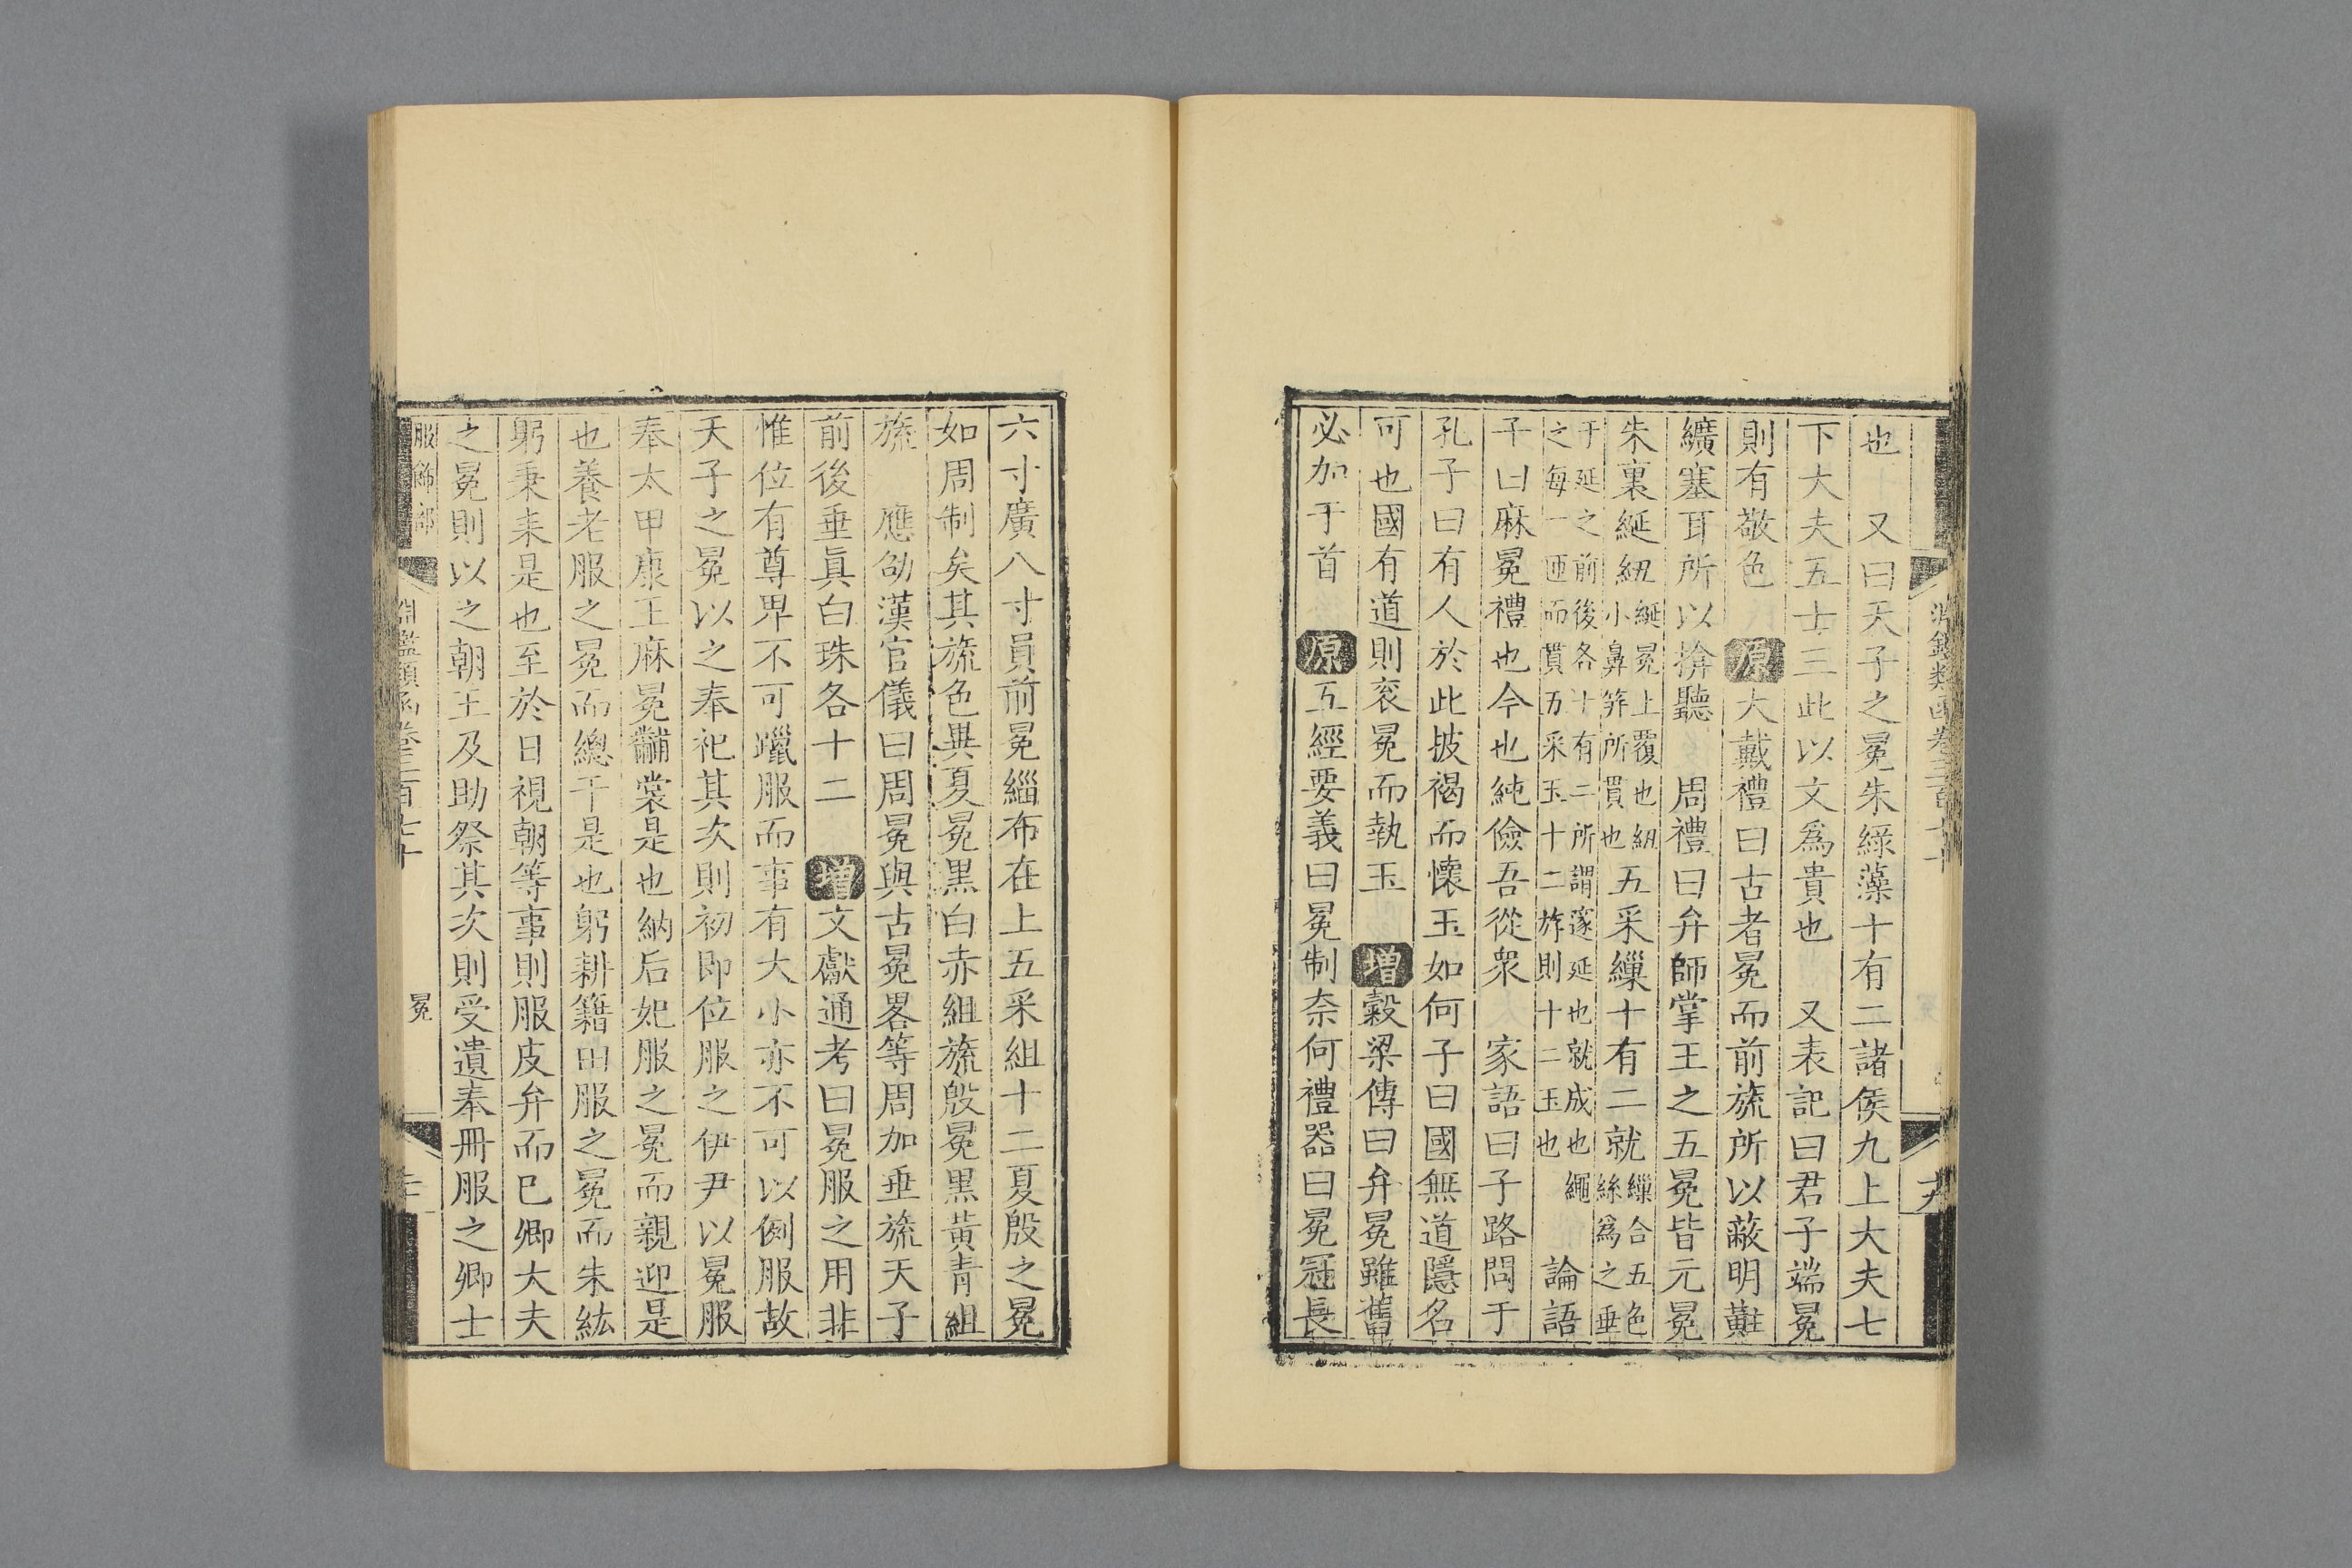 也　又曰天子之冕朱綠藻十有二諸侯九上大夫七
下大夫五士三此以文爲貴也　又表記曰君子端冕
則有敬色　原大戴禮曰古者冕而前旒所以蔽明黈
纊塞耳所以揜聽　周禮曰弁師掌王之五冕皆元冕
朱裏綖紐綖冕上覆也紐小鼻筓所貫也五采繅十有二就繅合五色絲爲之垂
于延之前後各十有二所謂邃延也就成也繩之每一匝而貫五采玉十二斿則十二玉也　論語
子曰麻冕禮也今也純儉吾從衆　家語曰子路問于
孔子曰有人於此披褐而懷玉如何子曰國無道隱名
可也國有道則衮冕而執玉　增穀梁傳曰弁冕雖舊
必加于首　原五經要義曰冕制奈何禮器曰冕冠長
六寸廣八寸員前冕緇布在上五采組十二夏殷之冕
如周制矣其旒色異夏冕黑白赤組旒殷冕黑黃青組
旒　應劭漢官儀曰周冕與古冕畧等周加垂旒天子
前後垂眞白珠各十二　增文獻通考曰冕服之用非
惟位有尊卑不可躐服而事有大小亦不可以例服故
天子之冕以之奉祀其次則初即位服之伊尹以冕服
奉太甲康王麻冕黼裳是也納后妃服之冕而親迎是
也養老服之冕而總干是也躬耕籍田服之冕而朱紘
躬秉耒是也至於日視朝等事則服皮弁而巳卿大夫
之冕則以之朝王及助祭其次則受遺奉冊服之卿士
服飾部　淵鑑類函卷三百七十　冕